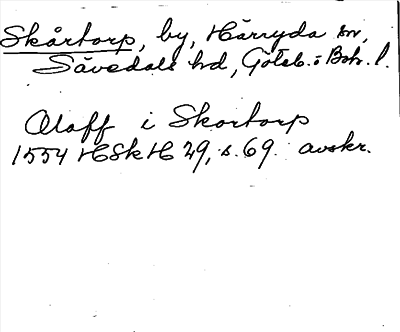 Skårtorp, by, Härryda sn,
Sävedals hd, Göteb. o Boh. l.
Oloff i Skortorp
1554 HSkH 29, s. 69. avskr.